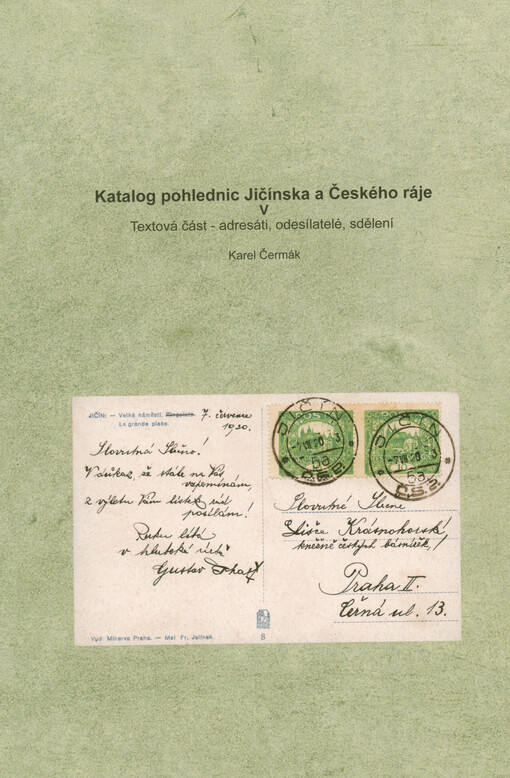 Katalog pohlednic Jičínska a Českého ráje
V
Textová část - adresáti, odesílatelé, sdělení
Karel Čermák
JIČÍN: — Velké náměstí. Ringplatz.
La grande place.
7. července
1920.
Slovutná Slečno!
V důkaz, že stále na Vás
vzpomínám,
z výletu Vám lístek
posílám!
Ruku líbá
v hluboké úctě
Gustav
JIČÍN
-7.VII.20
5a
Č.S.P.
JIČÍN
-7.VII.20
5a
Č.S.P.
Slovutné Slečně
Elišce Krásnohorské,
kněžně českých básníků,
Praha II.
Černá ul. 13.
Vyd. Minerva Praha. — Mat. Fr. Jelínek.
8